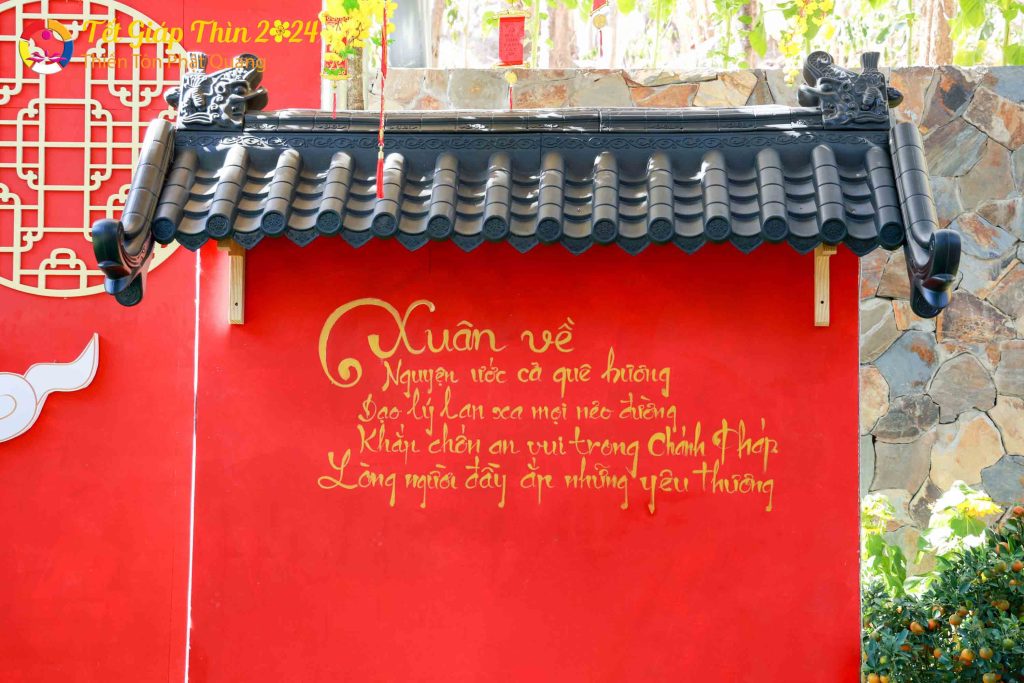 Tết Giáp Thìn 2024
Thiền Tôn Phật Quang
Xuân về
Nguyện ước cả quê hương
Đạo lý lan xa mọi nẻo đường
Khắp chốn an vui trong Chánh Pháp
Lòng người đầy ắp những yêu thương